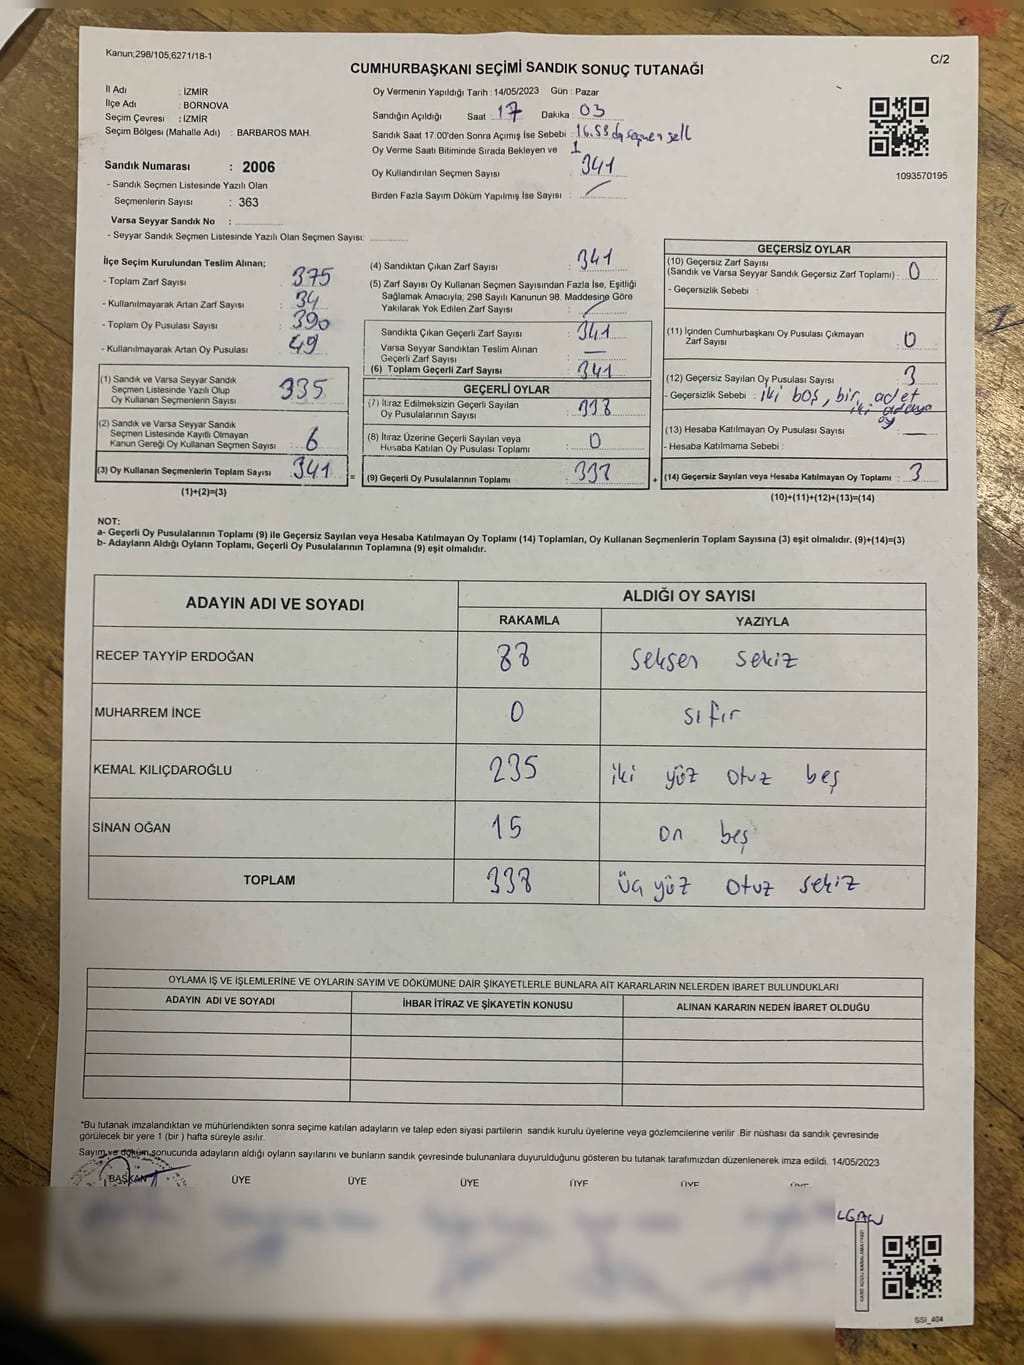 Kanun;298/105,6271/18-1
C/2
CUMHURBAŞKANI SEÇİMİ SANDIK SONUÇ TUTANAĞI
İl Adı : İZMİR
İlçe Adı : BORNOVA
Seçim Çevresi : İZMİR
Seçim Bölgesi (Mahalle Adı) : BARBAROS MAH.
Sandık Numarası : 2006
- Sandık Seçmen Listesinde Yazılı Olan
Seçmenlerin Sayısı : 363
Varsa Seyyar Sandık No :
- Seyyar Sandık Seçmen Listesinde Yazılı Olan Seçmen Sayısı:
Oy Vermenin Yapıldığı Tarih : 14/05/2023 Gün : Pazar
Sandığın Açıldığı Saat : 17 Dakika : 03
Sandık Saat 17:00'den Sonra Açımış İse Sebebi : 16.59 da seçmen
Oy Verme Saati Bitiminde Sırada Bekleyen ve 1
Oy Kullandırılan Seçmen Sayısı 341
Birden Fazla Sayım Döküm Yapılmış İse Sayısı :
1093570195
İlçe Seçim Kurulundan Teslim Alınan;
- Toplam Zarf Sayısı : 375
- Kullanılmayarak Artan Zarf Sayısı : 34
- Toplam Oy Pusulası Sayısı : 390
- Kullanılmayarak Artan Oy Pusulası : 49
(1) Sandık ve Varsa Seyyar Sandık
Seçmen Listesinde Yazılı Olup
Oy Kullanan Seçmenlerin Sayısı : 335
(2) Sandık ve Varsa Seyyar Sandık
Seçmen Listesinde Kayıtlı Olmayan
Kanun Gereği Oy Kullanan Seçmen Sayısı : 6
(3) Oy Kullanan Seçmenlerin Toplam Sayısı : 341 =
(1)+(2)=(3)
(4) Sandıktan Çıkan Zarf Sayısı : 341
(5) Zarf Sayısı Oy Kullanan Seçmen Sayısından Fazla İse, Eşitliği
Sağlamak Amacıyla; 298 Sayılı Kanunun 98. Maddesine Göre
Yakılarak Yok Edilen Zarf Sayısı :
Sandıkta Çıkan Geçerli Zarf Sayısı : 341
Varsa Seyyar Sandıktan Teslim Alınan
Geçerli Zarf Sayısı : —
(6) Toplam Geçerli Zarf Sayısı : 341
GEÇERLİ OYLAR
(7) İtiraz Edilmeksizin Geçerli Sayılan
Oy Pusulalarının Sayısı : 338
(8) İtiraz Üzerine Geçerli Sayılan veya
Hesaba Katılan Oy Pusulası Toplamı : 0
(9) Geçerli Oy Pusulalarının Toplamı : 338 +
GEÇERSİZ OYLAR
(10) Geçersiz Zarf Sayısı
(Sandık ve Varsa Seyyar Sandık Geçersiz Zarf Toplamı) : 0
- Geçersizlik Sebebi :
(11) İçinden Cumhurbaşkanı Oy Pusulası Çıkmayan
Zarf Sayısı : 0
(12) Geçersiz Sayılan Oy Pusulası Sayısı : 3
- Geçersizlik Sebebi : iki boş, bir adet
iki adaya
oy
(13) Hesaba Katılmayan Oy Pusulası Sayısı : —
- Hesaba Katılmama Sebebi :
(14) Geçersiz Sayılan veya Hesaba Katılmayan Oy Toplamı : 3
(10)+(11)+(12)+(13)=(14)
NOT:
a- Geçerli Oy Pusulalarının Toplamı (9) ile Geçersiz Sayılan veya Hesaba Katılmayan Oy Toplamı (14) Toplamları, Oy Kullanan Seçmenlerin Toplam Sayısına (3) eşit olmalıdır. (9)+(14)=(3)
b- Adayların Aldığı Oyların Toplamı, Geçerli Oy Pusulalarının Toplamına (9) eşit olmalıdır.
ADAYIN ADI VE SOYADI
ALDIĞI OY SAYISI
RAKAMLA YAZIYLA
RECEP TAYYİP ERDOĞAN 88 Seksen Sekiz
MUHARREM İNCE 0 sıfır
KEMAL KILIÇDAROĞLU 235 iki yüz otuz beş
SİNAN OĞAN 15 on beş
TOPLAM 338 üç yüz otuz sekiz
OYLAMA İŞ VE İŞLEMLERİNE VE OYLARIN SAYIM VE DÖKÜMÜNE DAİR ŞİKAYETLERLE BUNLARA AİT KARARLARIN NELERDEN İBARET BULUNDUKLARI
ADAYIN ADI VE SOYADI İHBAR İTİRAZ VE ŞİKAYETİN KONUSU ALINAN KARARIN NEDEN İBARET OLDUĞU
*Bu tutanak imzalandıktan ve mühürlendikten sonra seçime katılan adayların ve talep eden siyasi partilerin sandık kurulu üyelerine veya gözlemcilerine verilir .Bir nüshası da sandık çevresinde
görülecek bir yere 1 (bir ) hafta süreyle asılır.
Sayım ve döküm sonucunda adayların aldığı oyların sayılarını ve bunların sandık çevresinde bulunanlara duyurulduğunu gösteren bu tutanak tarafımızdan düzenlenerek imza edildi. 14/05/2023
BAŞKAN ÜYE ÜYE ÜYE ÜYE ÜYE
SSI_404